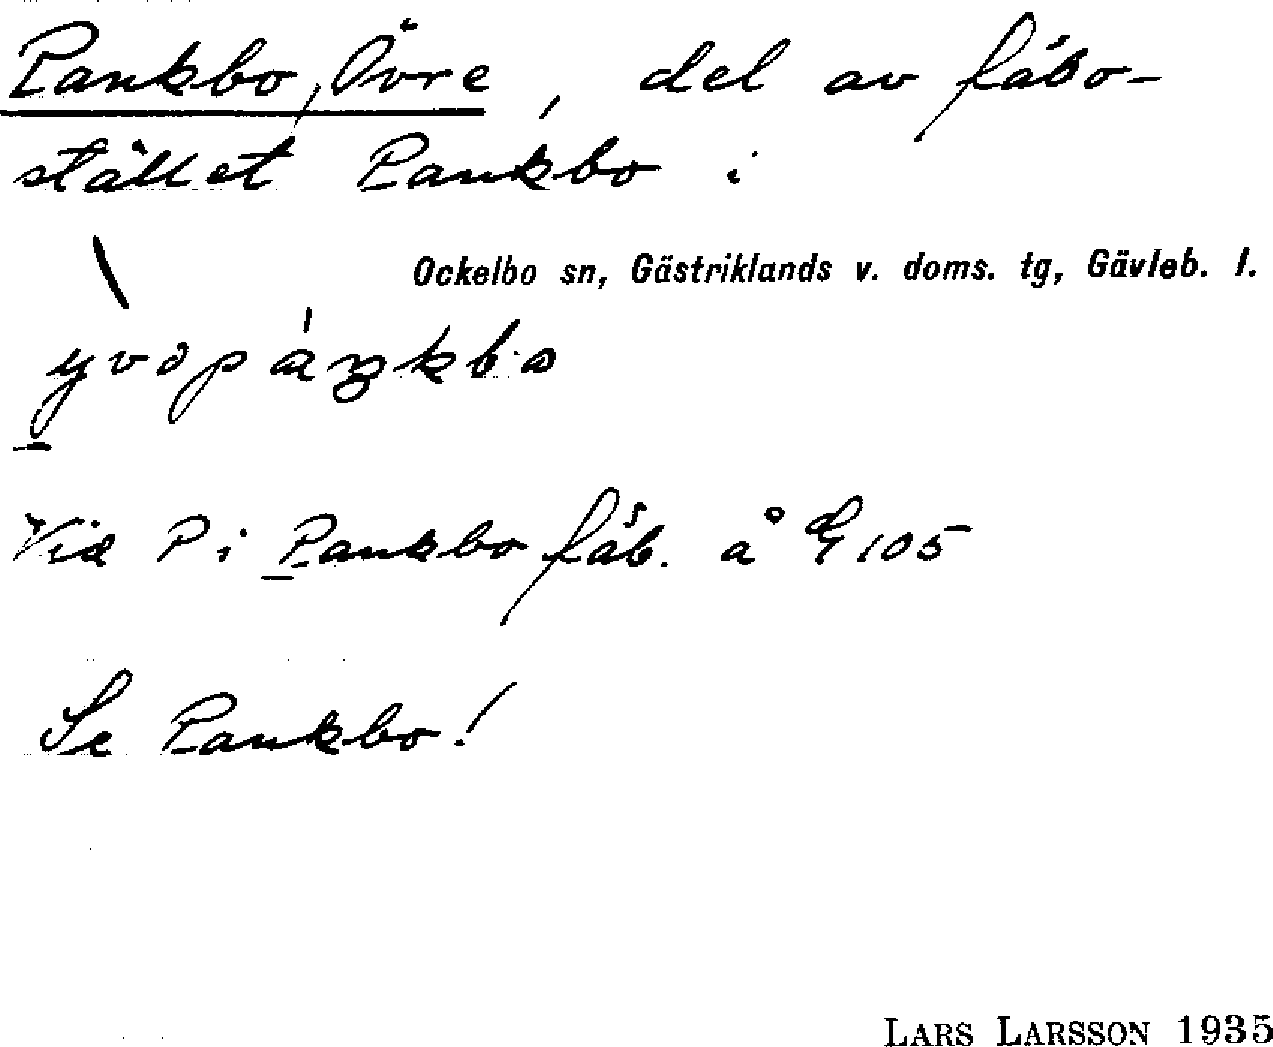 Pankbo, Övre, del av fäbo-
stället Pankbo i
Ockelbo sn, Gästriklands v. doms. tg, Gävleb. l.
Vid P i Pankbo fäb. å 105
Se Pankbo!
LARS LARSSON 1935